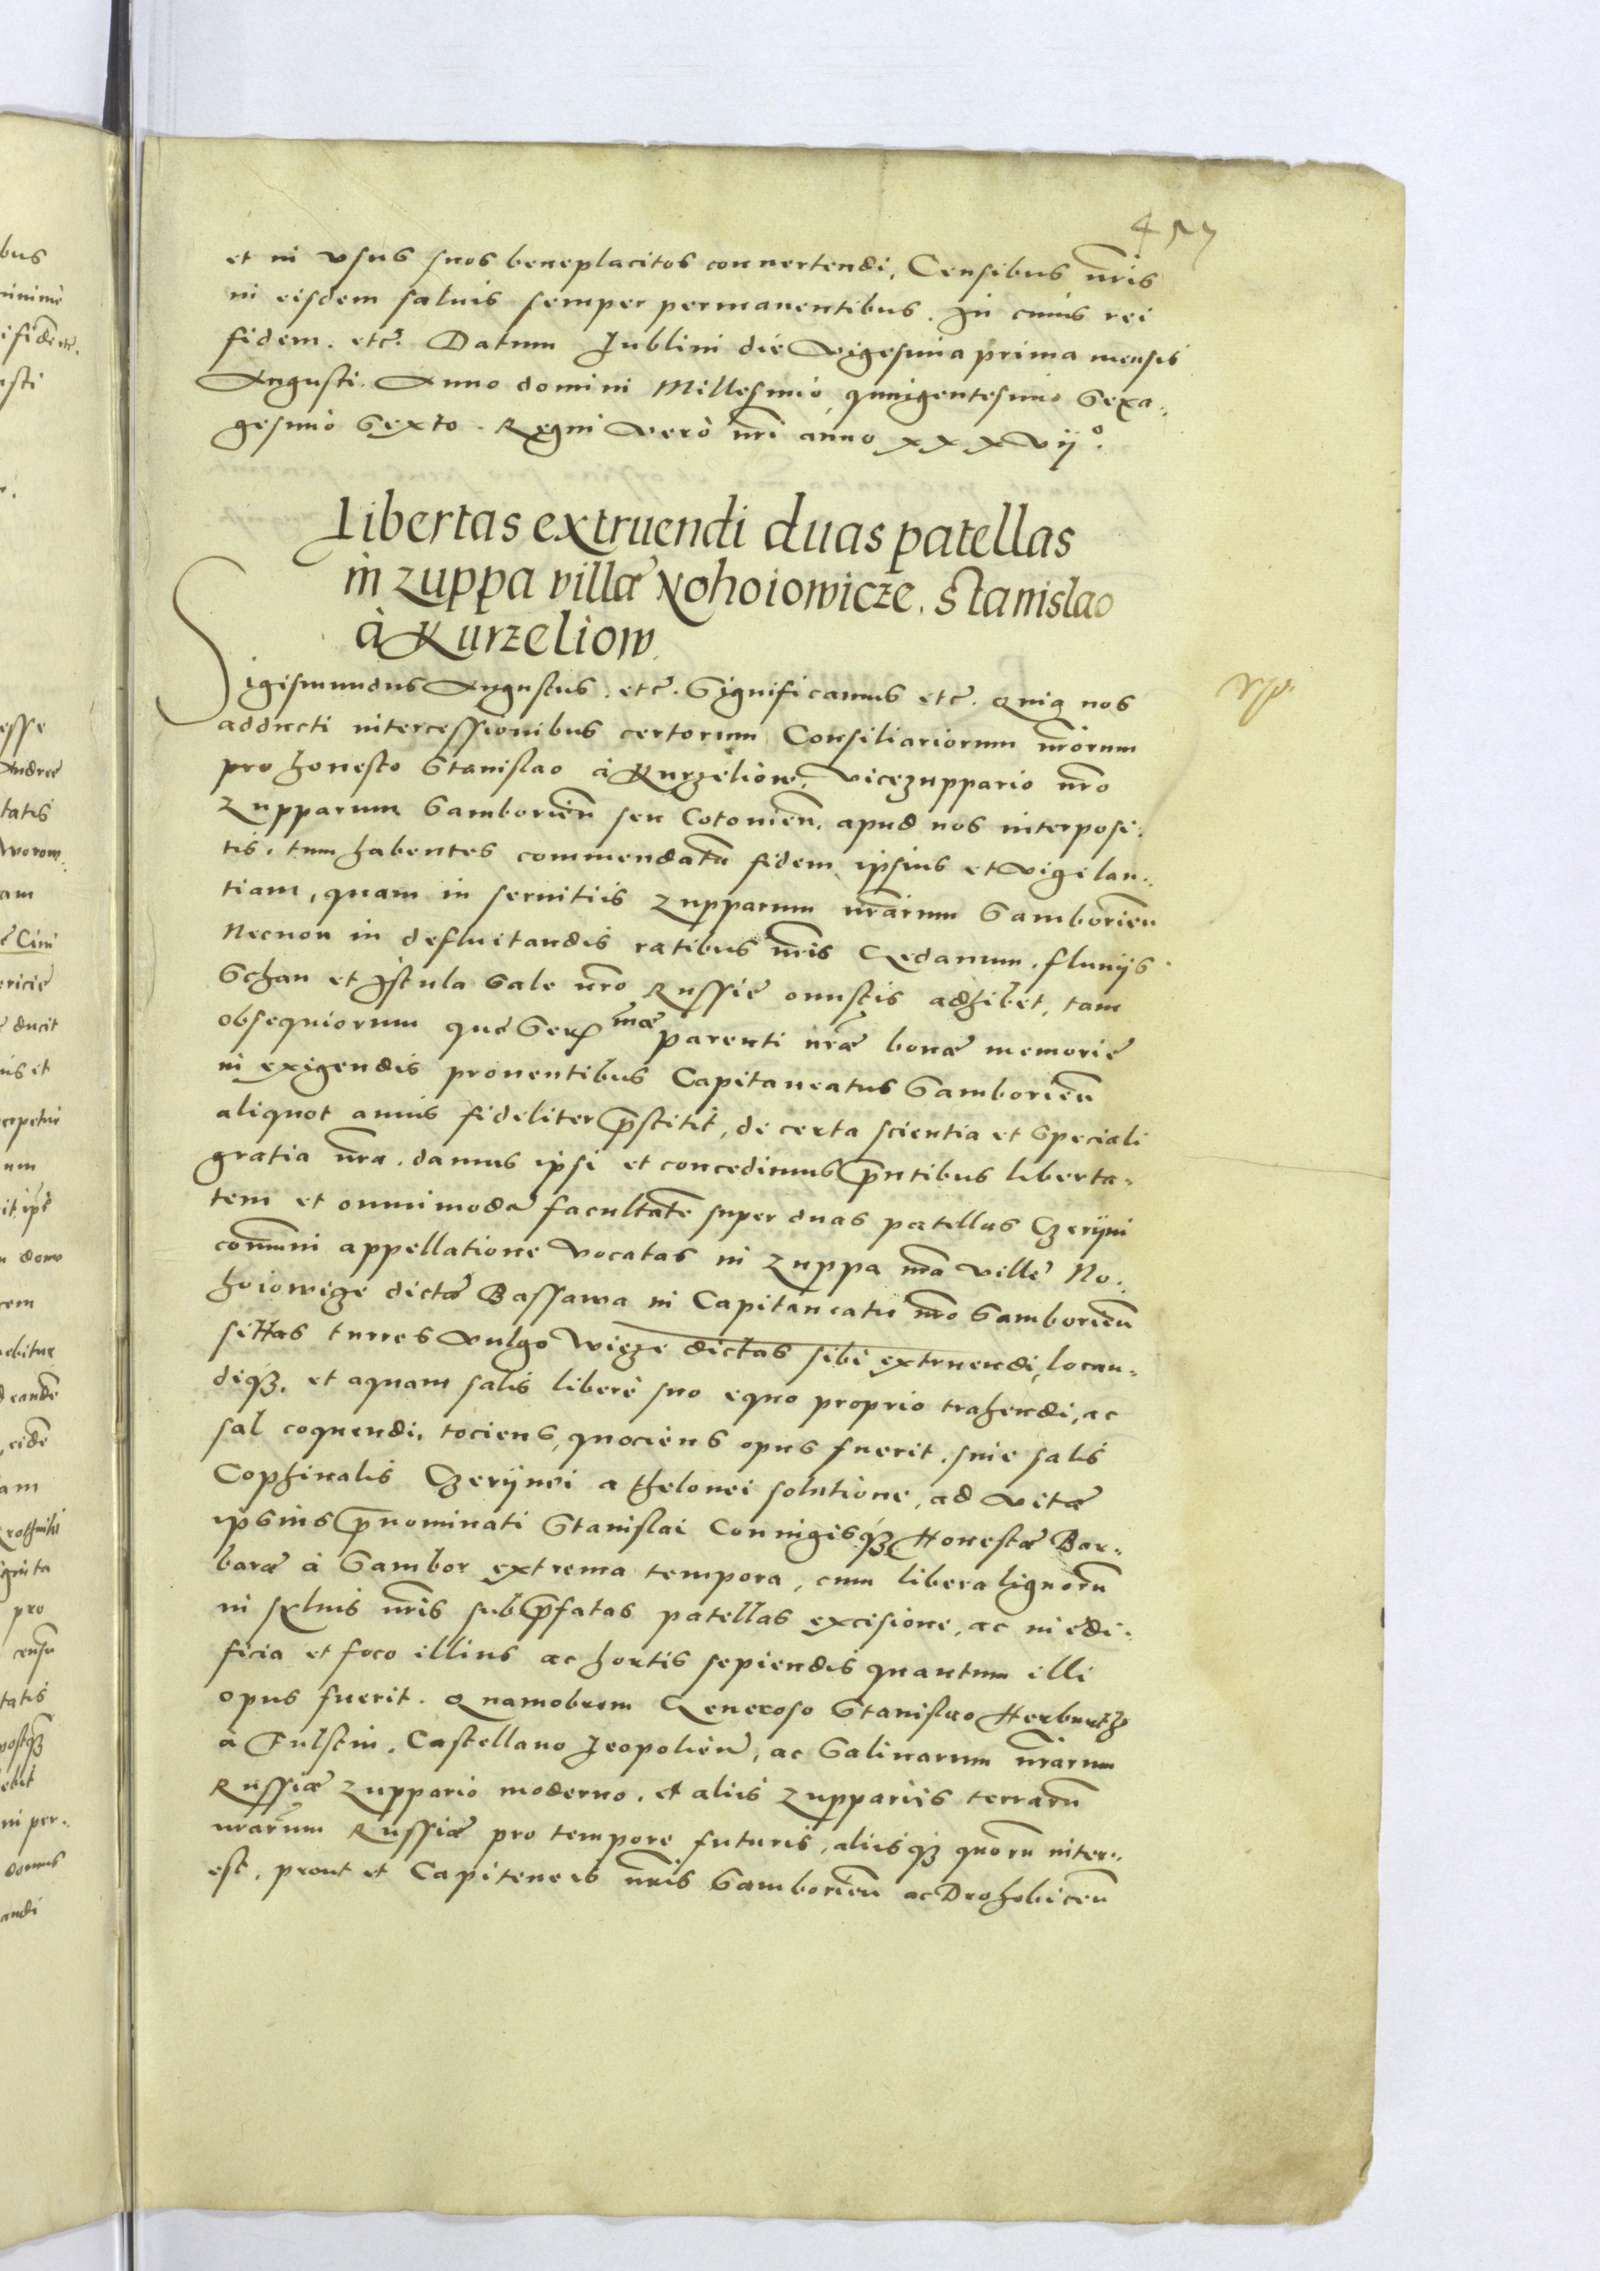 et in vsus suos beneplacitos conuertendi, Censibus nr̃is
in eisdem saluis semper permanentibus. In cuius rei
fidem. etc̃. Datum Lublini die vigesima prima mensis
Augusti. Anno domini Millesimo quingentesimo Sexa-
gesimo Sexto. Regni verò nr̃i anno xxxvij°.
Libertas extruendi duas patellas
in zuppa villæ Nohoiowicze. Stanislao
à Kurzeliow.
Sigismundus Augustus. etc̃. Significamus etc̃. Quia nos
adducti intercessionibus certorum Consiliariorum nr̃orum
pro honesto Stanislao à Kurzeliow, vicezuppario nr̃o
Zupparum Samborien̄ seu Cotomen̄. apud nos interposi-
tis. tum habentes commendatā fidem ipsius et vigilan-
tiam, quam in seruitiis Zupparum nr̃arum Samborien̄
Necnon in defluitandis ratibus nr̃is Gedanum. fluuijs
Schan et Istula sale nr̃o Russiæ onustis adhibet, tam
obsequiorum quæ Ser^mæ parenti nr̃æ bonæ memoriæ
in exigendis prouentibus Capitaneatus Samborien̄
aliquot annis fideliter p̄stitit, de certa scientia et speciali
gratia nr̃a. damus ipsi et concedimus p̄ntibus liberta-
tem et omnimodā facultatē super duas patellas Czeryni
com̄uni appellatione vocatas in Zuppa nr̃a villæ No-
hoiowicze dictæ Bassawa in Capitaneatu nr̃o Samborien̄
sittas turres vulgo wieze dictas sibi extruendi, locan-
diq̃. et aquam salis liberè suo equo proprio trahendi, ac
sal coquendi. tociens, quociens opus fuerit. siue salis
Cophinalis Czerynei a thelonei solutione, ad vitæ
ipsius p̄nominati Stanislai Coniugisq̃ Honestæ Bar-
baræ à Sambor extrema tempora, cum libera lignorū
in syluis nr̃is sub p̄fatas patellas excisione, ac in ędi-
ficia et foco illius ac hortis sepiendis quantum illi
opus fuerit. Quamobrem Generoso Stanislao Herburth
à Fulstin. Castellano Leopolien̄, ac Salinarum nr̃arum
Russiæ Zuppario moderno. et aliis Zuppariis terrarū
nr̃arum Russiæ pro tempore futuris, aliisq̃ quorū inter-
est. prout et Capiteneis nr̃is Samborien̄ ac Drohobicen̄